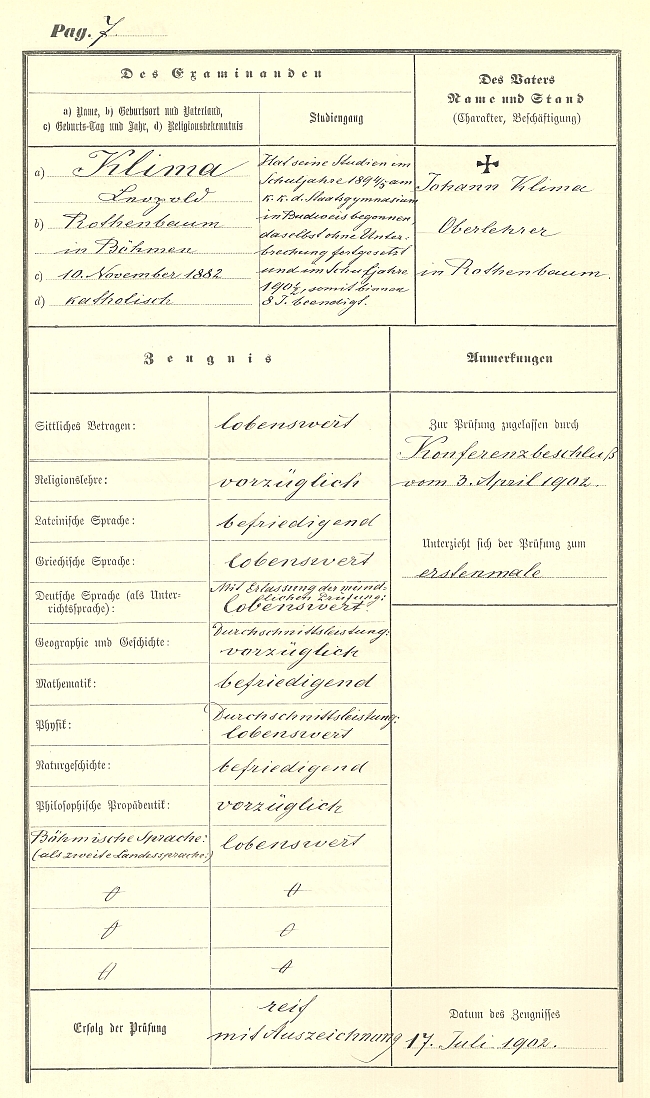 Pag. 7
Des Examinanden
a) Name, b) Geburtsort und Vaterland,
c) Geburts-Tag und Jahr, d) Religionsbekenntnis
Studiengang
Des Vaters
Name und Stand
(Charakter, Beschäftigung)
a) Klima
Leopold
b) Rothenbaum
in Böhmen
c) 10. November 1882
d) katholisch
Hat seine Studien im
Schuljahre 1894/5 am
k. k. d. Staatsgymnasium
in Budweis begonnen,
daselbst ohne Unter-
brechung fortgesetzt
und im Schuljahre
1901/2, somit binnen
8 J. beendigt.
✠
Johann Klima
Oberlehrer
in Rothenbaum.
Zeugnis
Anmerkungen
Sittliches Betragen: lobenswert
Religionslehre: vorzüglich
Lateinische Sprache: befriedigend
Griechische Sprache: lobenswert
Deutsche Sprache (als Unter-
richtssprache):
Mit Erlassung der münd-
lichen Prüfung:
lobenswert.
Geographie und Geschichte:
Durchschnittsleistung:
vorzüglich
Mathematik: befriedigend
Physik:
Durchschnittsleistung:
lobenswert
Naturgeschichte: befriedigend
Philosophische Propädeutik: vorzüglich
Böhmische Sprache:
(als zweite Landessprache:)
lobenswert
Zur Prüfung zugelassen durch
Konferenzbeschluß
vom 3. April 1902.
Unterzieht sich der Prüfung zum
erstenmale
Erfolg der Prüfung
reif
mit Auszeichnung
Datum des Zeugnisses
17. Juli 1902.